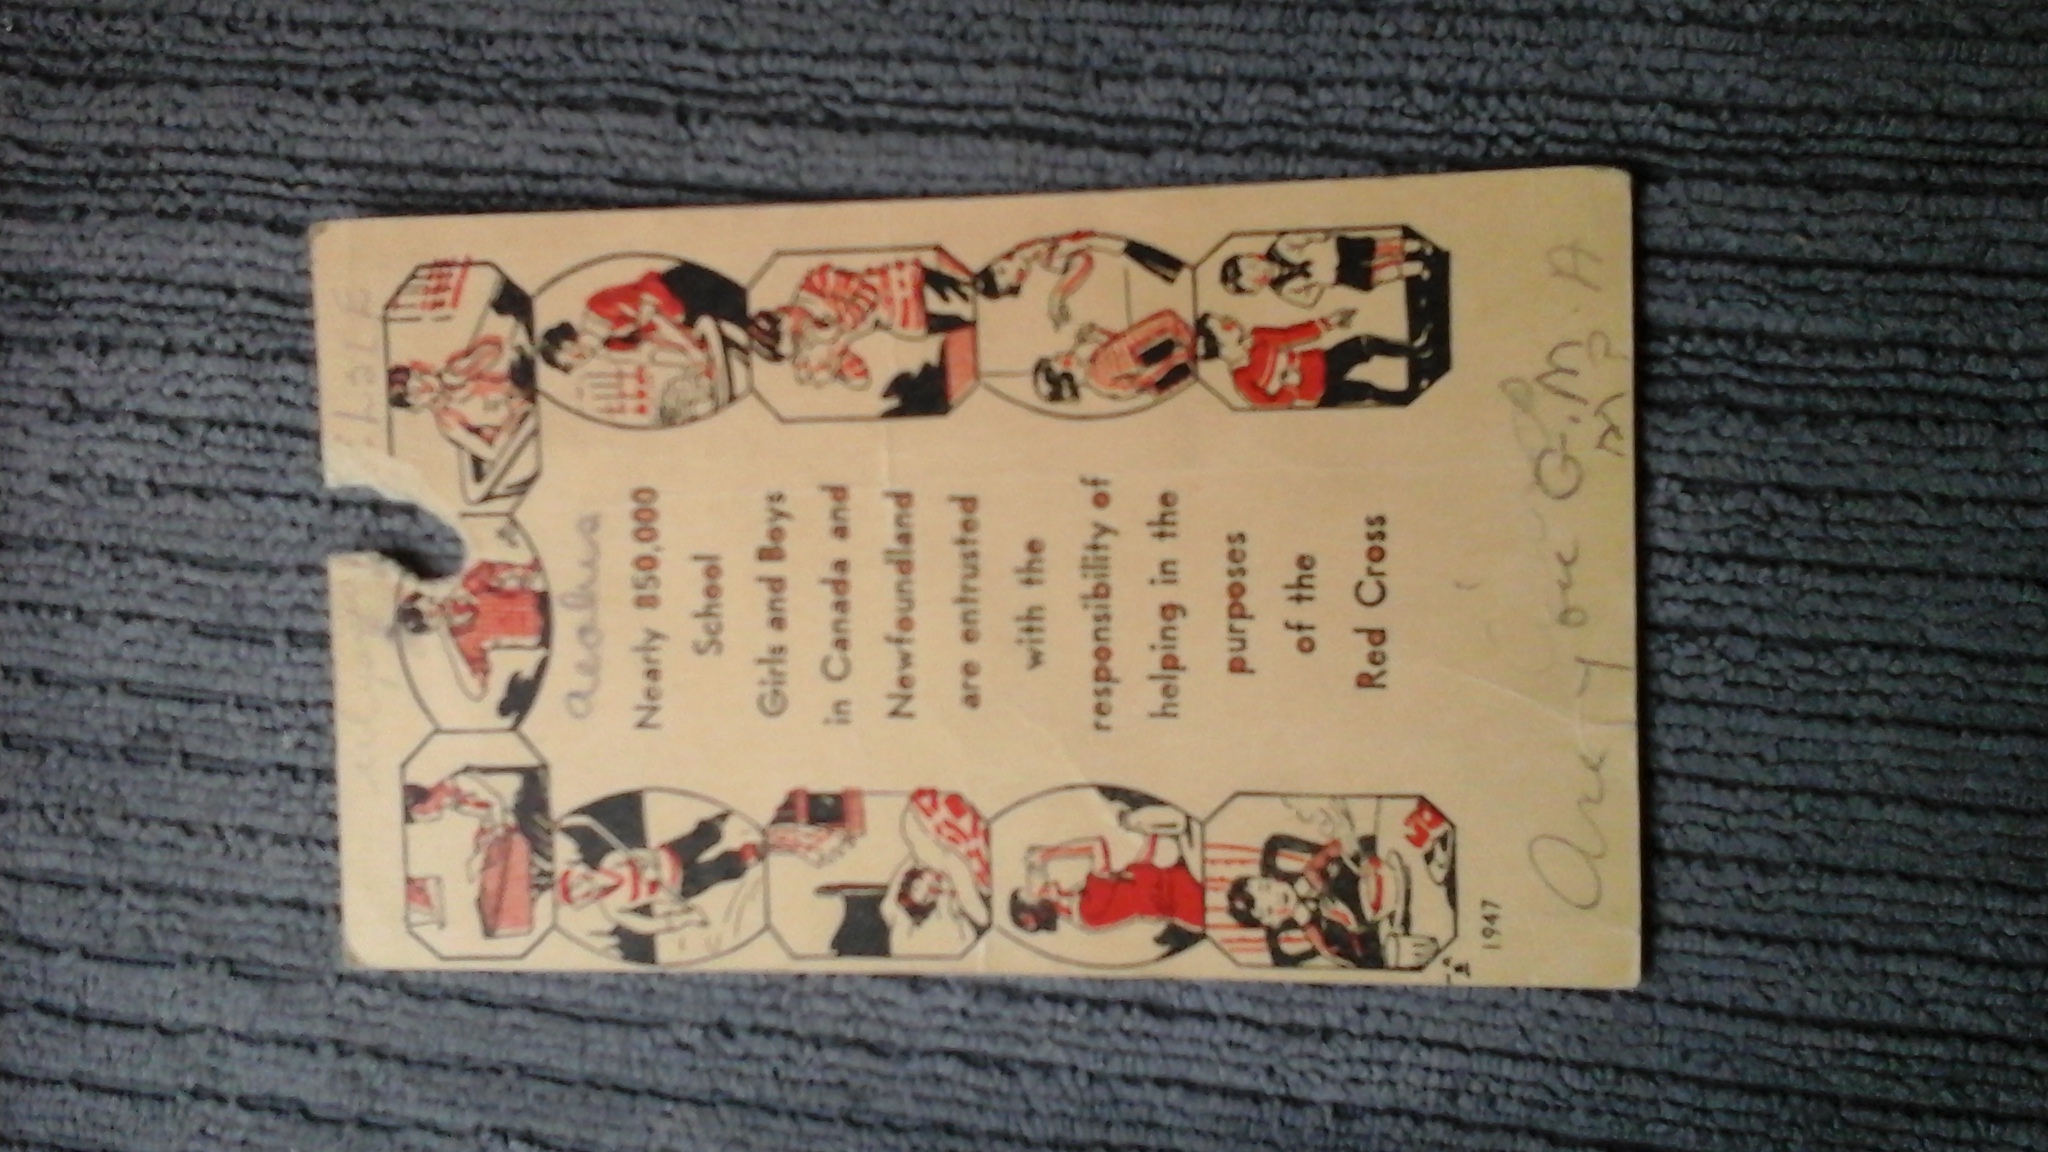 Nearly 850,000
School
Girls and Boys
in Canada and
Newfoundland
are entrusted
with the
responsibility of
helping in the
purposes
of the
Red Cross
1947
G.M.A